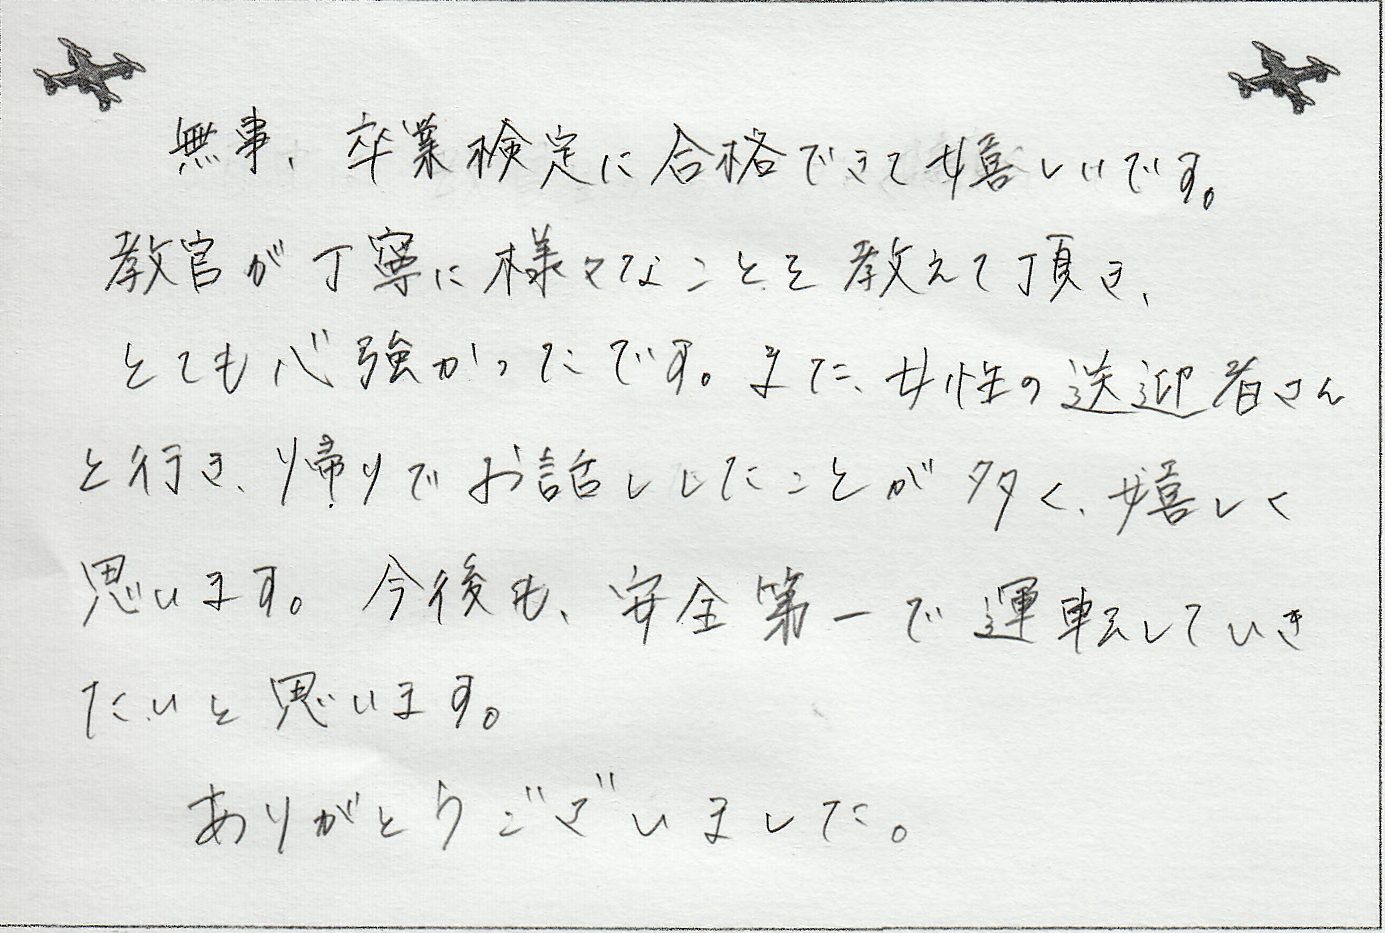 無事、卒業検定に合格できて嬉しいです。
教官が丁寧に様々なことを教えて頂き、
とても心強かったです。また、女性の送迎者さん
と行き、帰りでお話ししたことが多く、嬉しく
思います。今後も、安全第一で運転していき
たいと思います。
ありがとうございました。